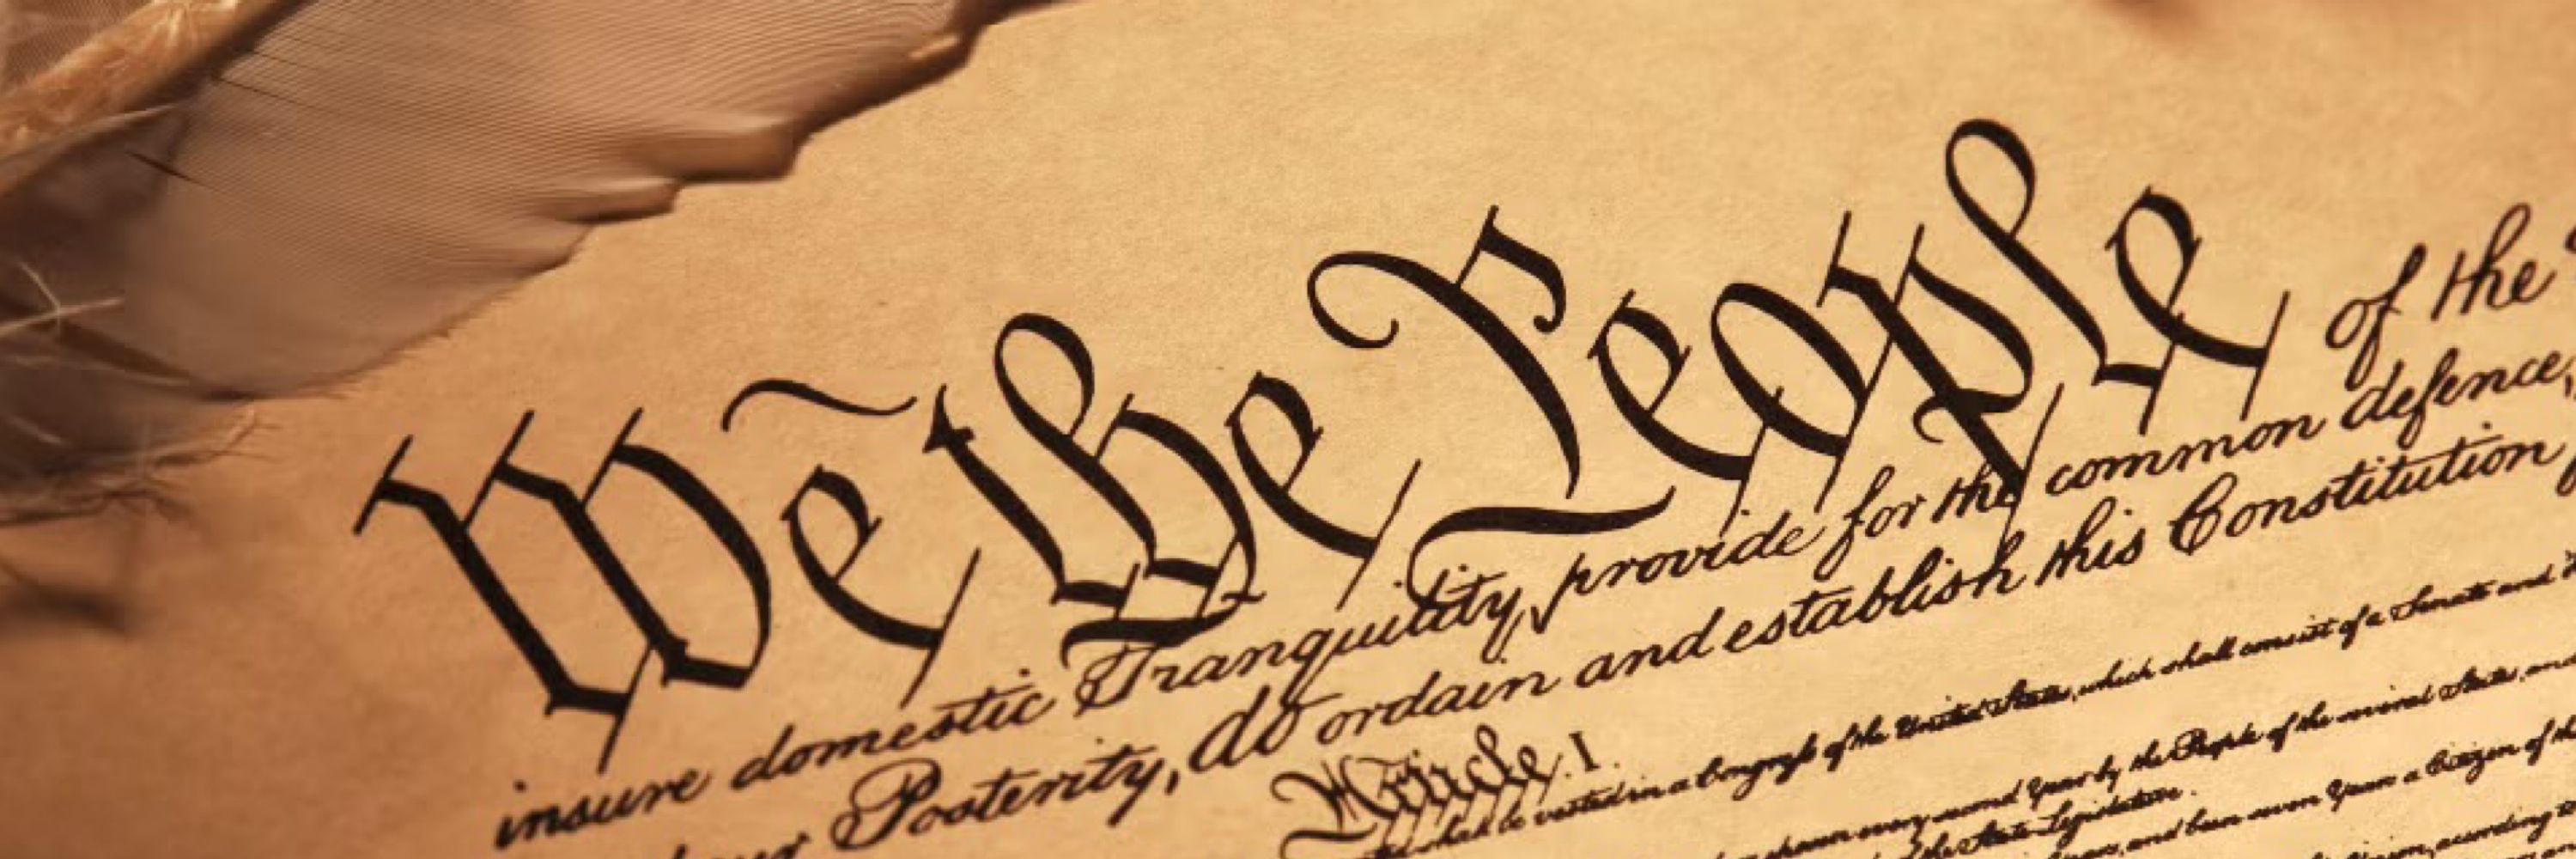 We the People of the
insure domestic Tranquility, provide for the common defence,
our Posterity, do ordain and establish this Constitution
Article. I.
shall be vested in a Congress of the United States, which shall consist of a Senate and
chosen every second Year by the People of the several States, and
the State Legislature.
and been seven Years a Citizen of the
according to